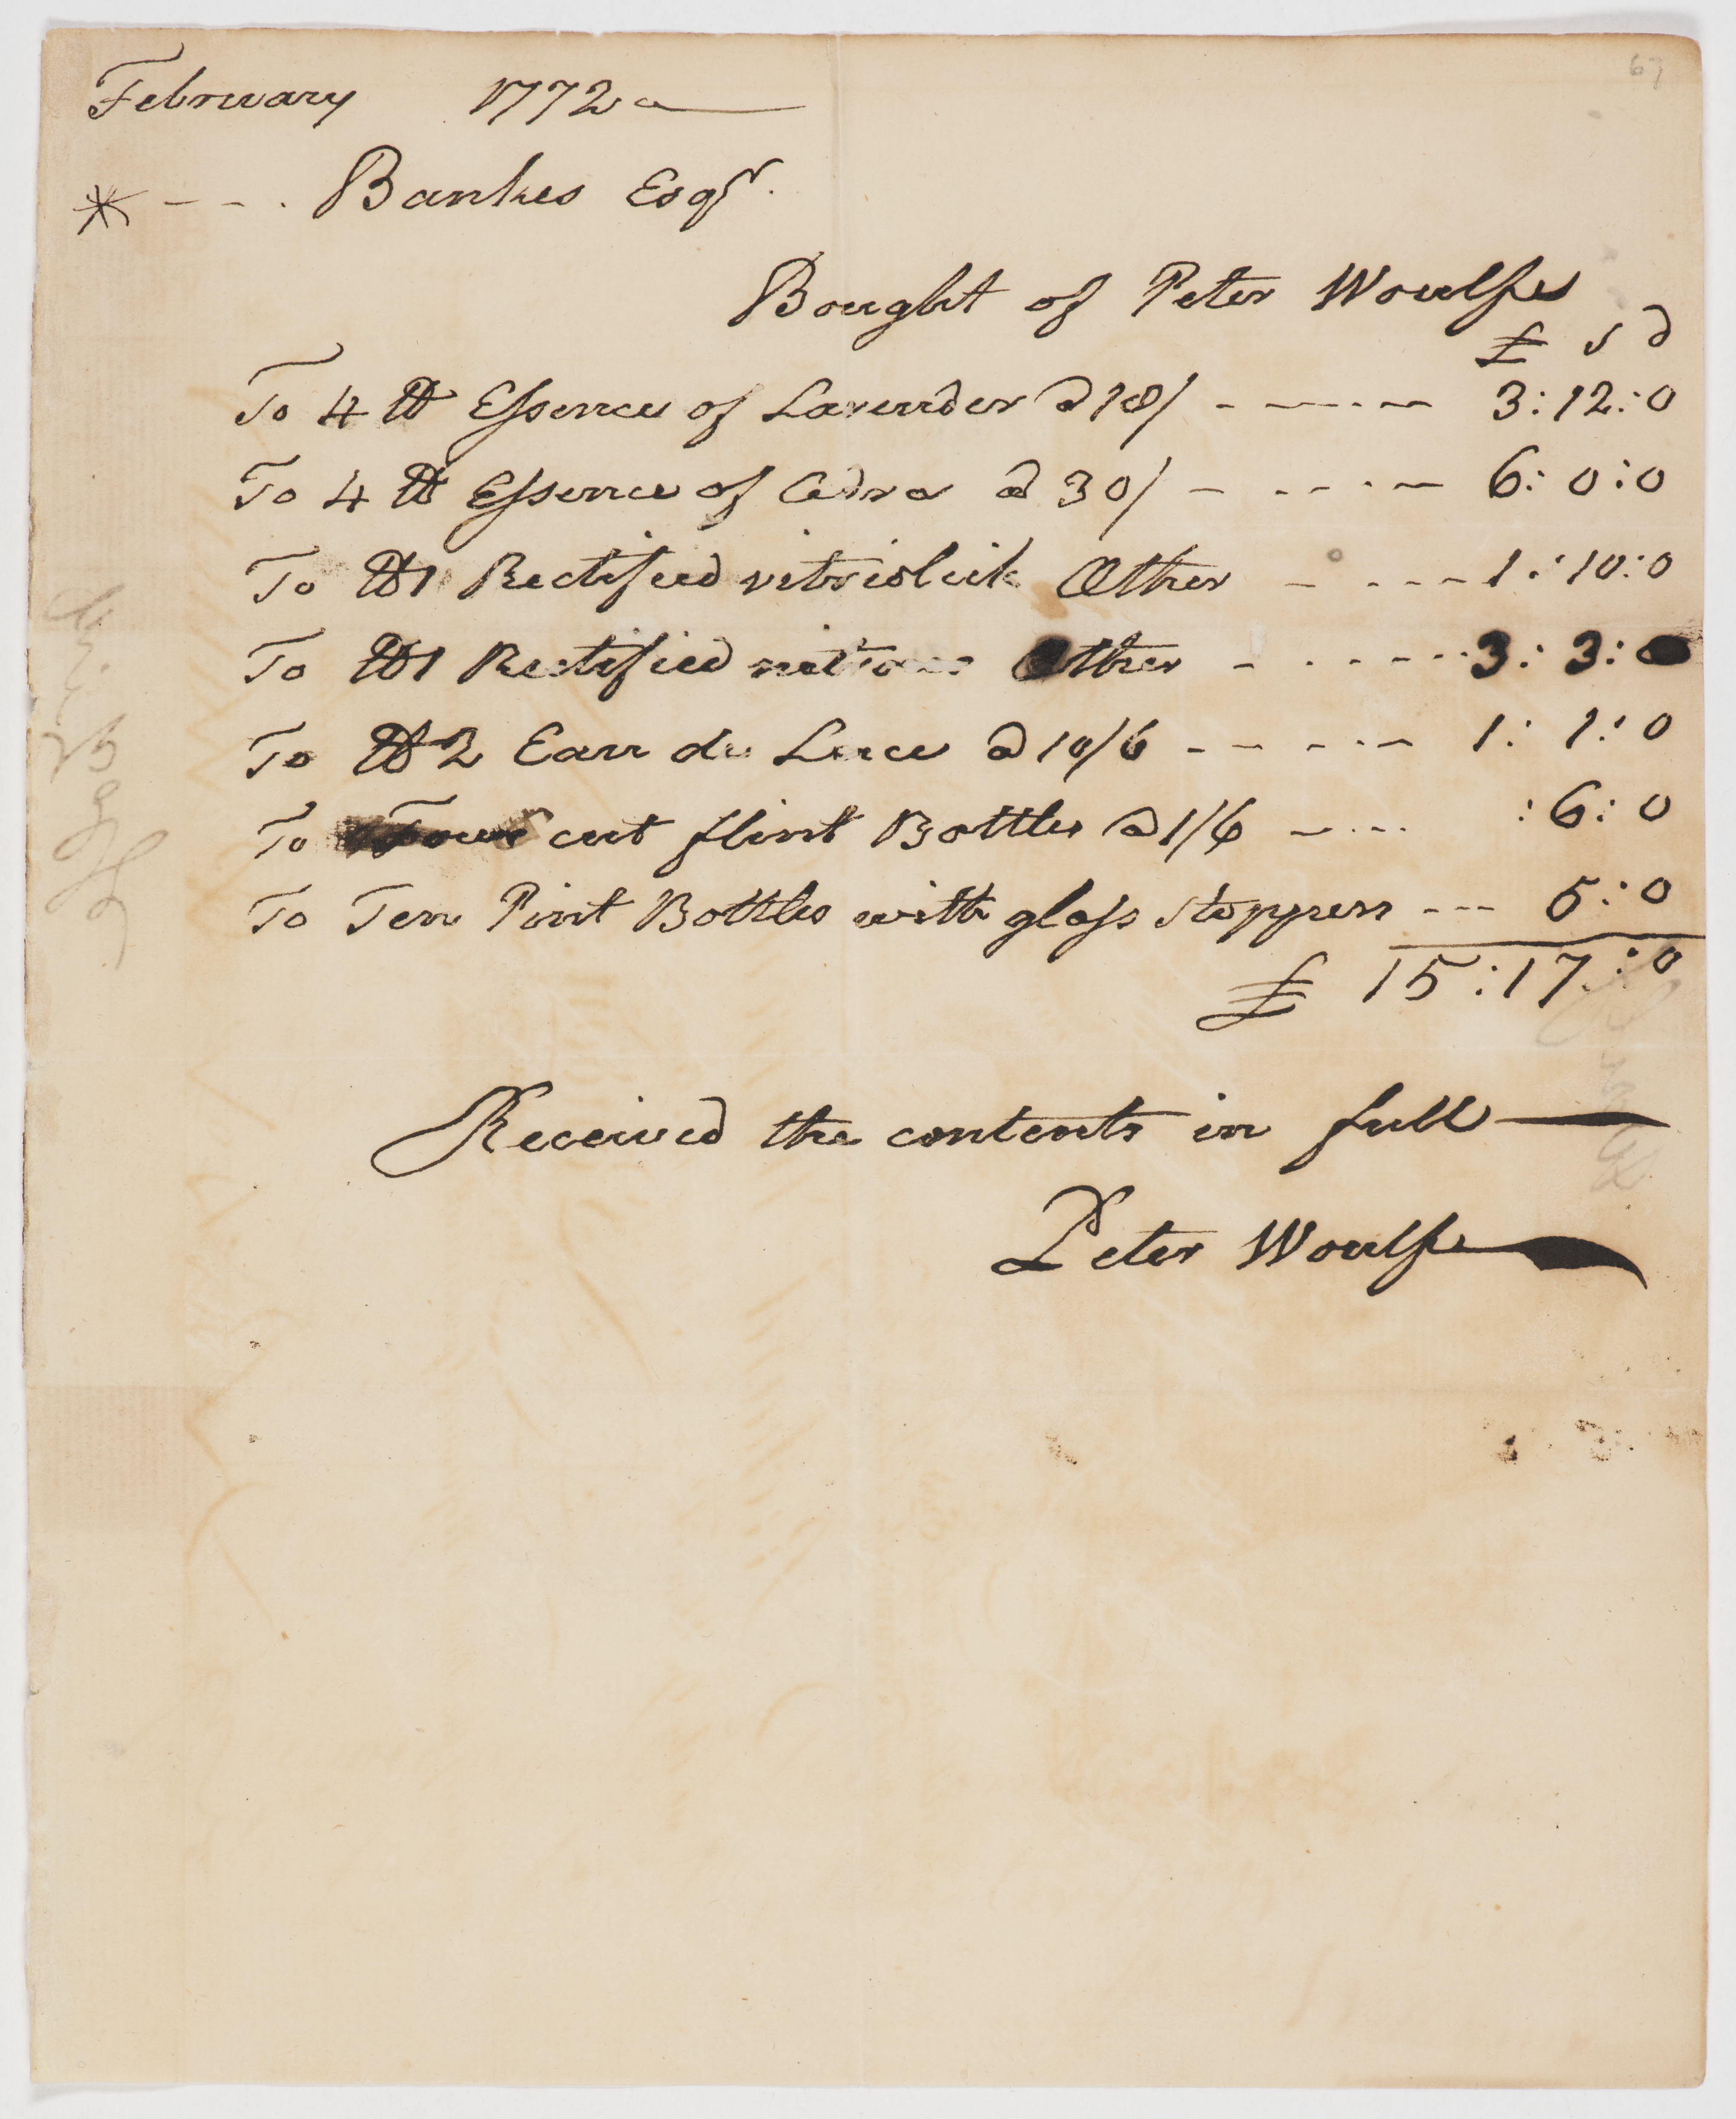 67
February 1772
* - - - . Bankes Esqr.
Bought of Peter Woulfe
£ s d
To 4 ℔ Essence of Lavender @ 18/ - - - - - 3:12:0
To 4 ℔ Essence of Cedra @ 30/ - - - - - 6:0:0
To ℔1 Rectified vitriolick Æther - - - - 1:10:0
To ℔1 Rectified nitrous Æther - - - - - 3:3:0
To ℔2 Eau de Luce @ 10/6 - - - - - 1:1:0
To Four cut flint Bottles @ 1/6 - - - - :6:0
To Ten Pint Bottles with glass stoppers - - - 5:0
£ 15:17:0
Received the contents in full
Peter Woulfe